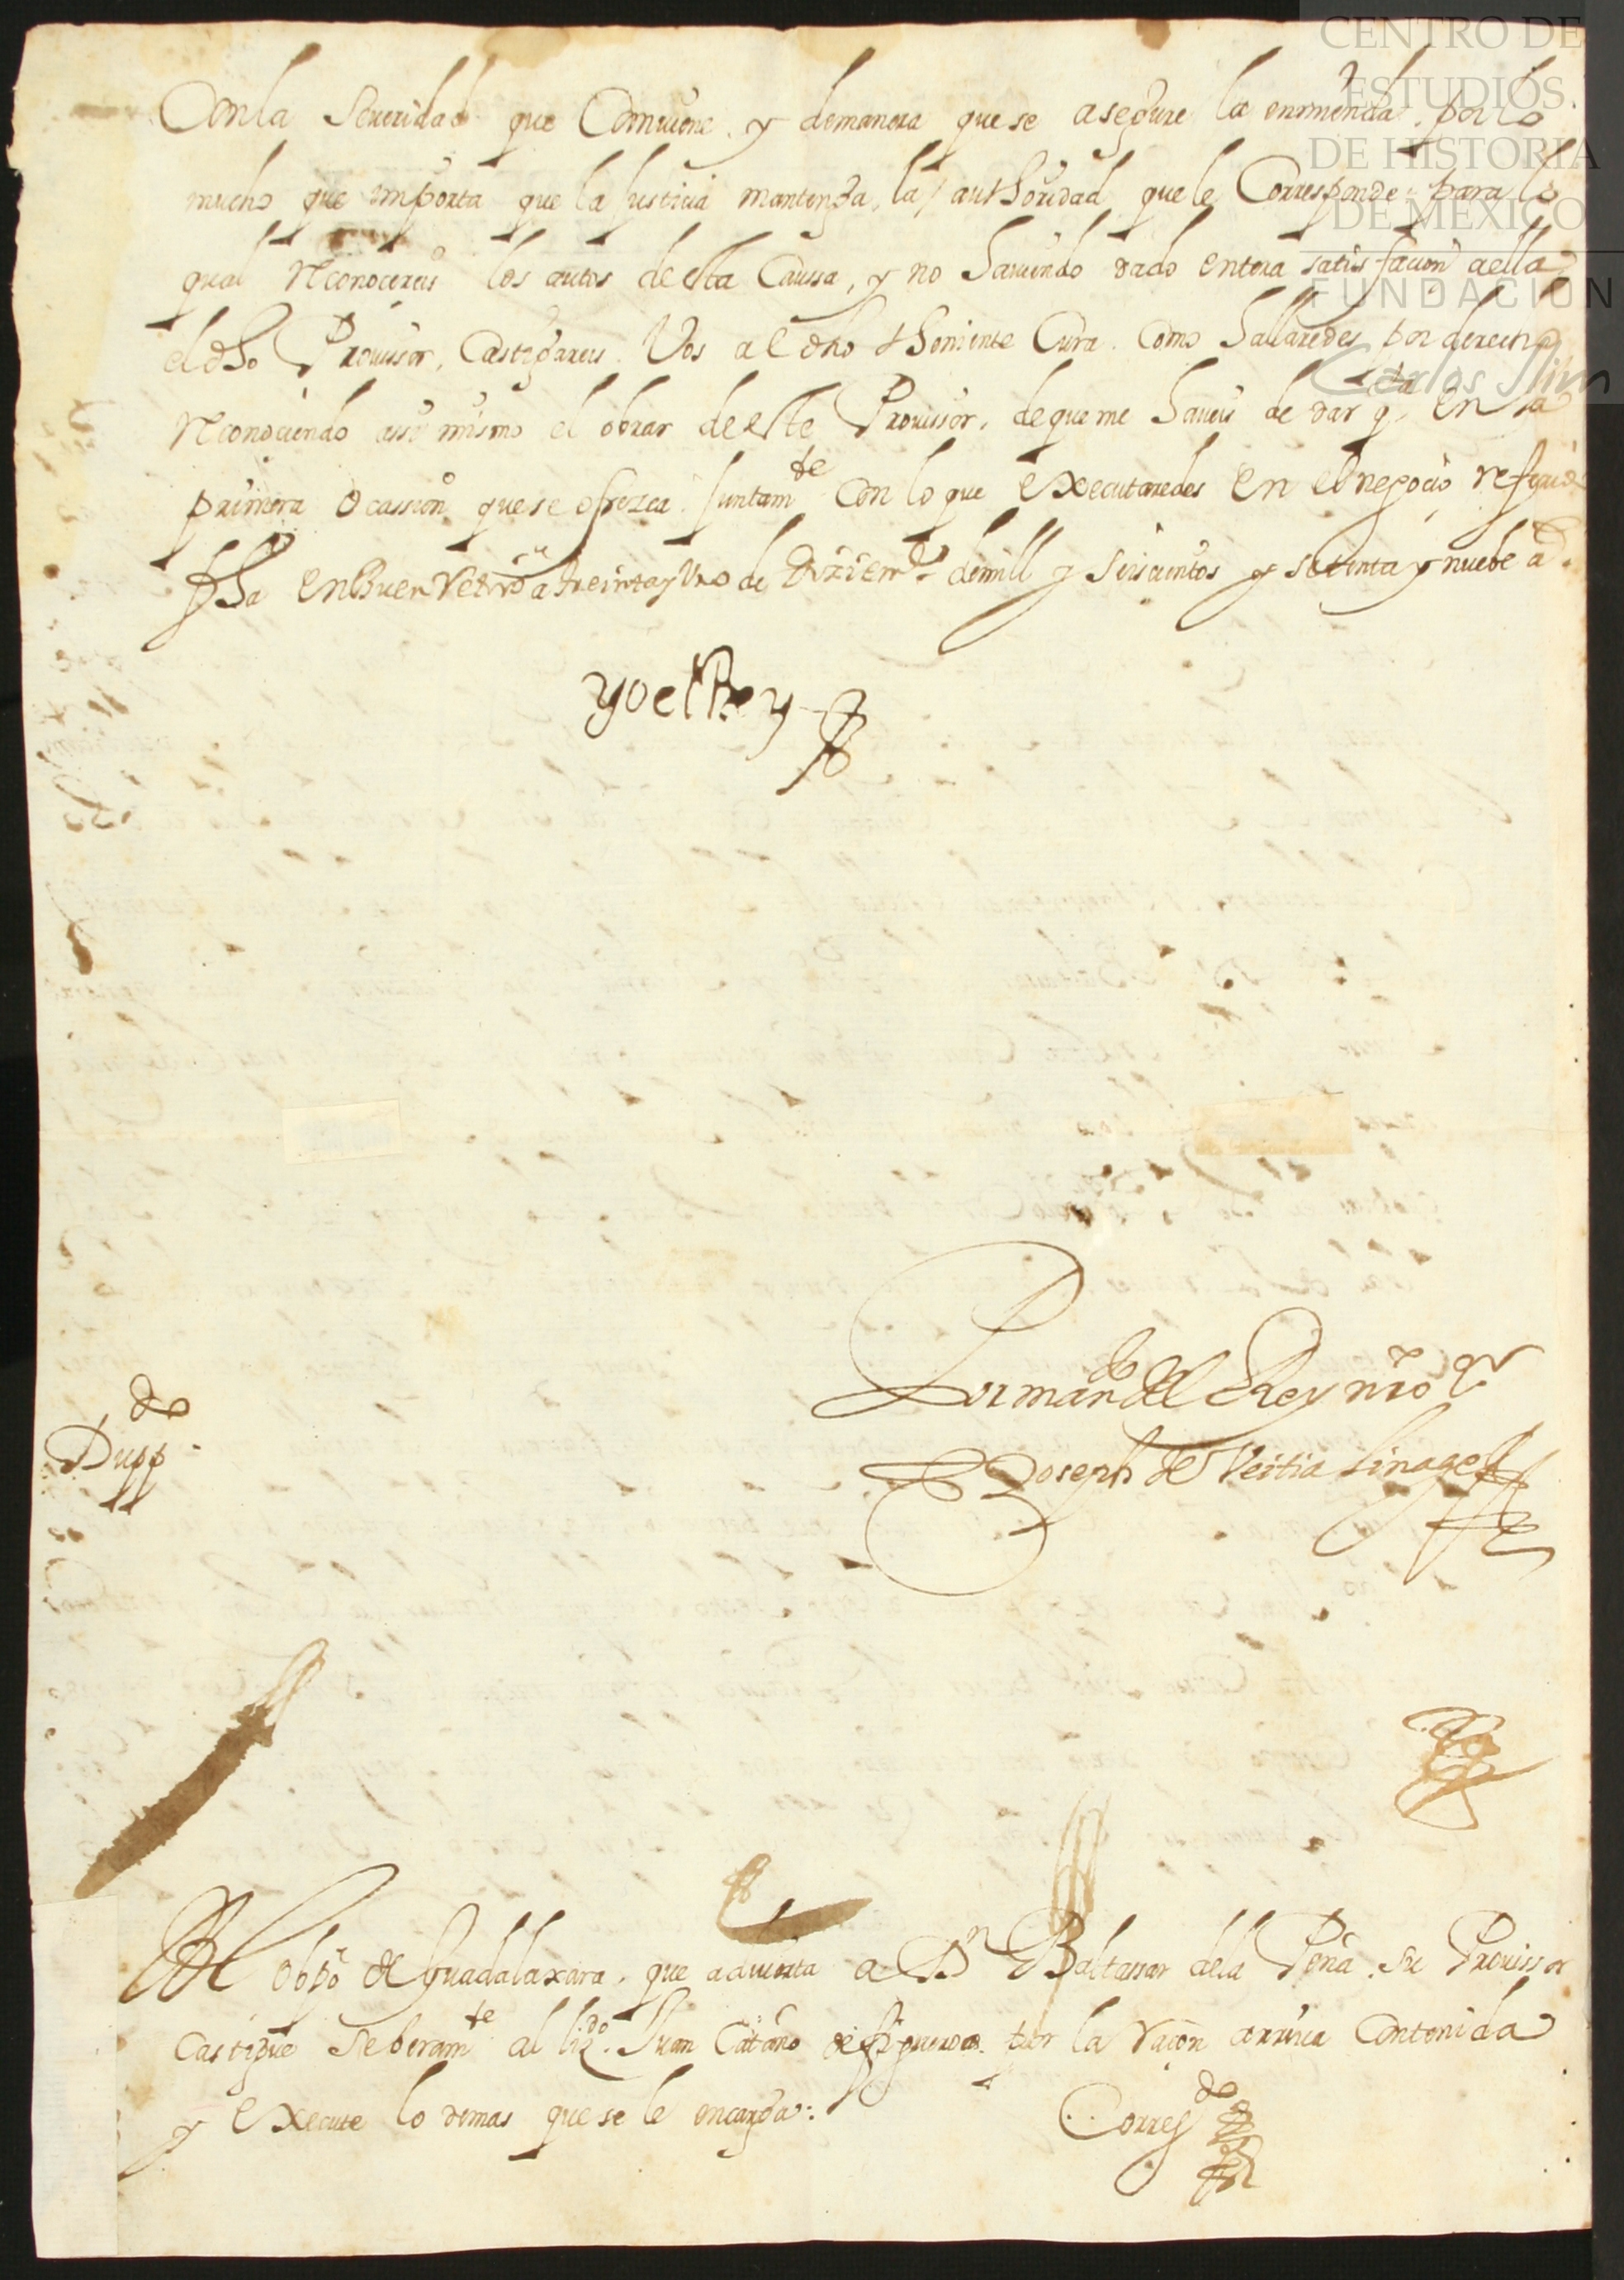 CENTRO DE
ESTUDIOS
DE HISTORIA
DE MÉXICO
FUNDACIÓN
Carlos Slim
Con la Seueridad que Comuiene y demanera que se asegure la enmienda por lo
mucho que importa que la Justicia mantenga la authoridad que le Corresponde para lo
qual Reconocereis los autos de esta Caussa, y no hauiendo dado entera satisfacion a ella
el dho Prouissor, Castigareis Vos al dho theniente Cura como hallaredes por derecho
Reconociendo assi mismo el obrar de este Prouissor, de que me haueis de dar qta en la
primera ocassion que se ofrezca Juntamte con lo que executaredes en el negocio referido
fha en Buen Retiro a treinta y Uno de Diziemre de mill y seiscientos y setenta y nuebe as.
yo el Rey
Por mando del Rey nro sr
Joseph de Veitia Linage
Dupp.do
Al obpo de Guadalaxara, que aduierta a Dn Baltassar de la Peña su Prouissor
castigue seberamte al lizdo Juan Catano de figueroa por la racon arriua Contenida
y execute lo demas que se le encarga:
Corregdo